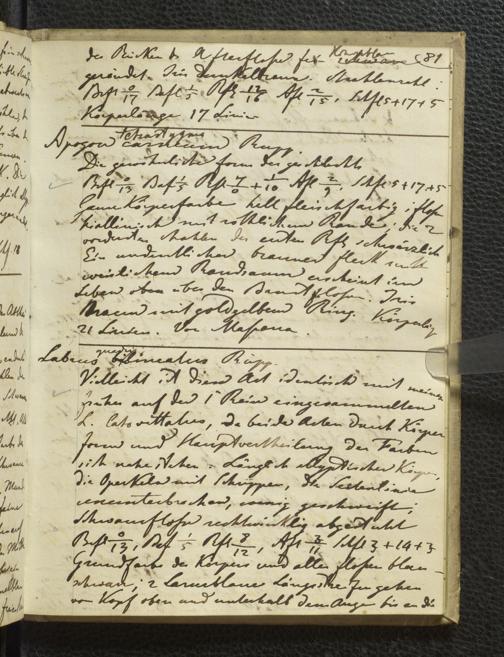 der Rücken & Afterflosse 81
gerändet. Iris dunkelbraun. Strahlenzahl:
Brfl 0/17 Bafl 1/5 Rfl /16 Afl 2/15, Schfl 5+17+5
Körperlänge 17 Linien
Apogon Rüpp.
Die gewöhnliche Form des Geschlechts
Brfl 0/13 Bafl 1/5 Rfl 7/0 + 1/10 Afl 2/9, Schfl 5+17+5
Körperfarbe hell fleischfarbig; Flossen
hiallinisch mit röthlichem Rande; die 2
vordersten Strahlen der ersten Rfl schwärzlich
Ein undeutlicher brauner Fleck mit
weislichem Randsaum erscheint im
Leben oben über den Brustflossen. Iris
braun mit goldgelbem Ring. Körperlänge
21 Linien. Von Massaua.
Labrus quadrilineatus Rüpp.
Vielleicht ist diese Art identisch mit meinem
früher auf der 1 Reise eingesammelten
L. , da beide Arten durch Körper
form und Hauptvertheilung der Farben
sich nahe stehen. Länglich elyptischer Körper,
die Operkeln mit Schuppen, die Seitenlinie
ununterbrochen, wenig geschweift;
Schwanzflosse rechtwinklig abgestutzt
Brfl 0/13, Baf 1/5 Rfl 8/12, Afl 3/11 Schfl 3+14+3
Grundfarbe des Körpers und aller Flossen blau-
schwarz; 2 Längs
von Kopf oben und unterhalb dem Auge bis an die